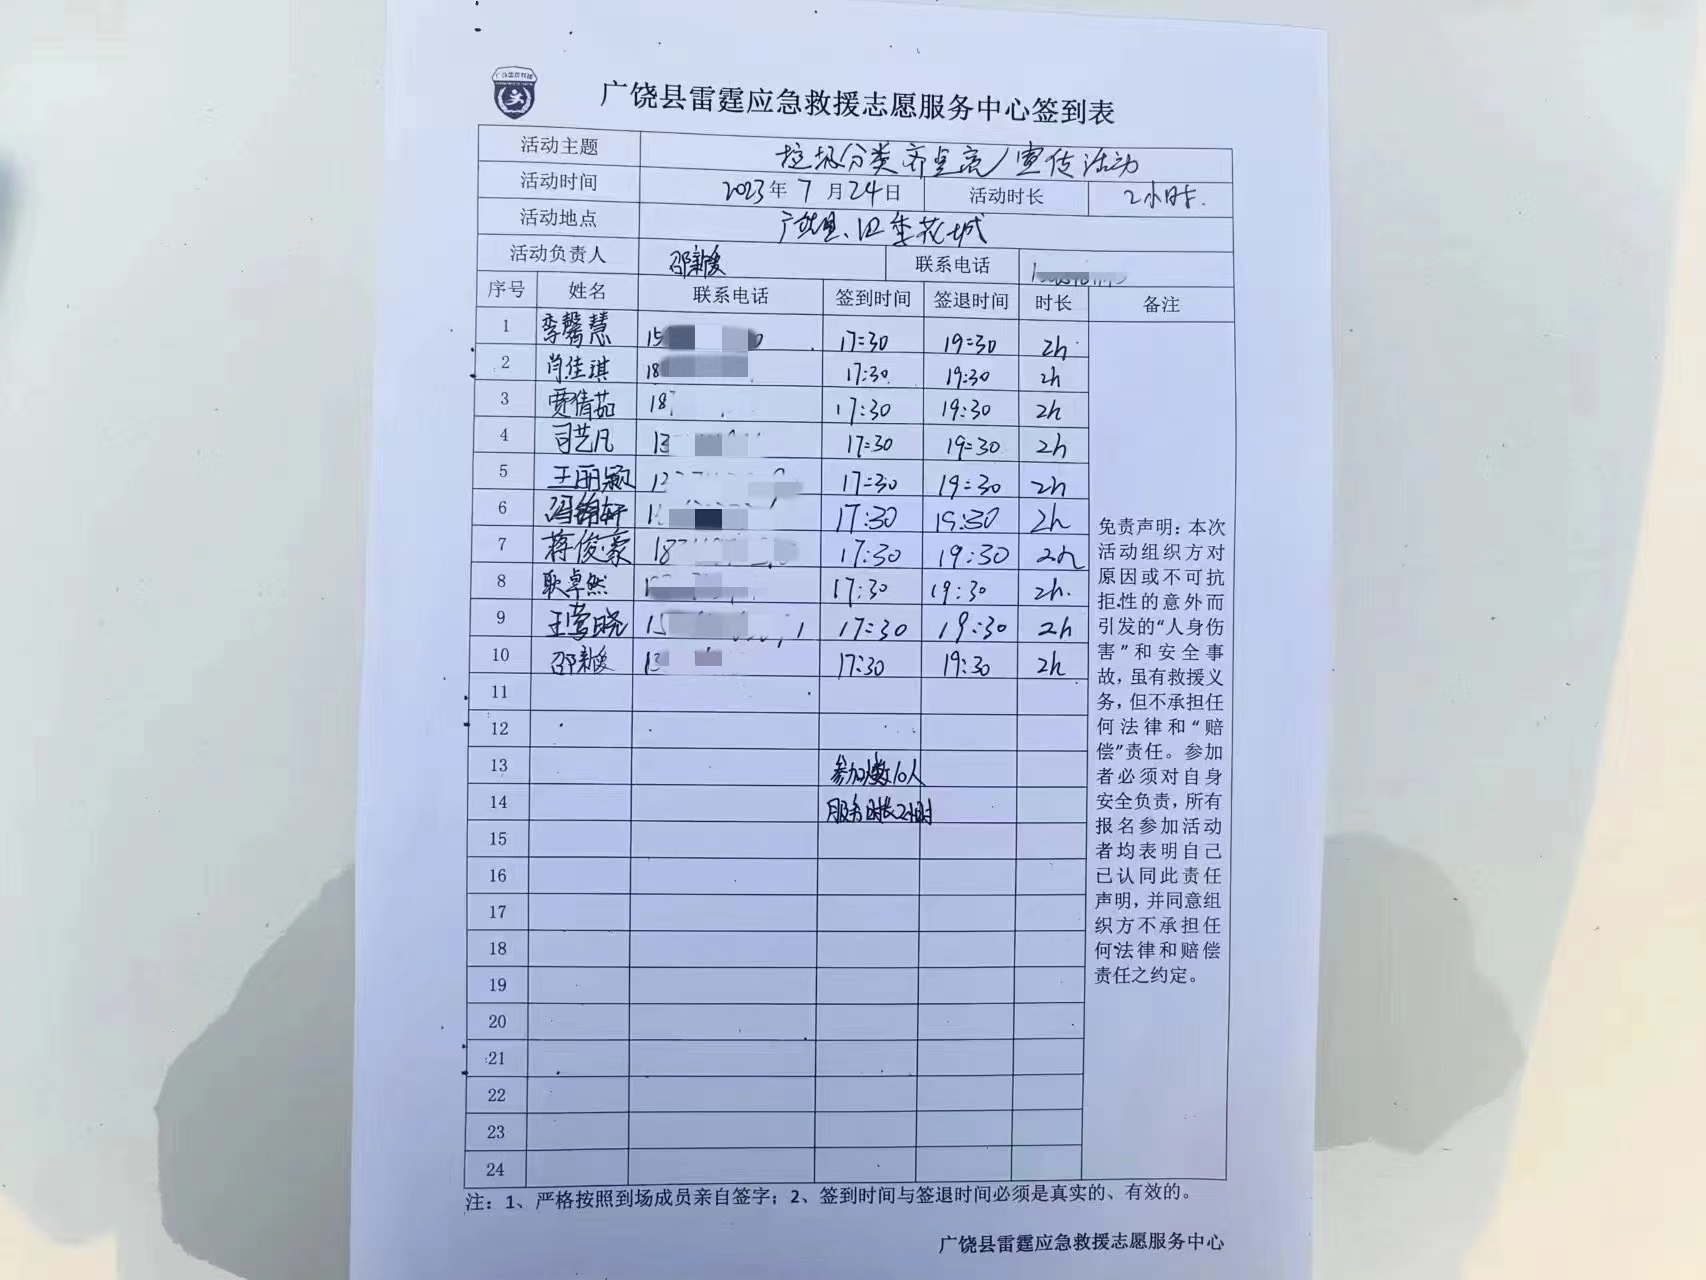 广饶县雷霆应急救援志愿服务中心签到表
活动主题 垃圾分类 宣传活动
活动时间 2023年 7 月 24 日 活动时长 2小时.
活动地点 广饶县、四季花城
活动负责人 邵新爱 联系电话
序号 姓名 联系电话 签到时间 签退时间 时长 备注
1 李馨慧 15 17:30 19:30 2h
2 肖佳琪 18 17:30 19:30 2h
3 贾倩茹 18 17:30 19:30 2h
4 司艺凡 13 17:30 19:30 2h
5 王丽颖 17:30 19:30 2h
6 冯锦轩 17:30 19:30 2h
7 蒋俊豪 18 17:30 19:30 2h
8 耿卓然 17:30 19:30 2h.
9 王莺晓 15 17:30 19:30 2h
10 邵新爱 13 17:30 19:30 2h
11
12
13 参加人数10人
14 服务时长2小时
15
16
17
18
19
20
21
22
23
24
免责声明：本次
活动组织方对
原因或不可抗
拒性的意外而
引发的“人身伤
害”和安全事
故，虽有救援义
务，但不承担任
何法律和“赔
偿”责任。参加
者必须对自身
安全负责，所有
报名参加活动
者均表明自己
已认同此责任
声明，并同意组
织方不承担任
何法律和赔偿
责任之约定。
注：1、严格按照到场成员亲自签字；2、签到时间与签退时间必须是真实的、有效的。
广饶县雷霆应急救援志愿服务中心